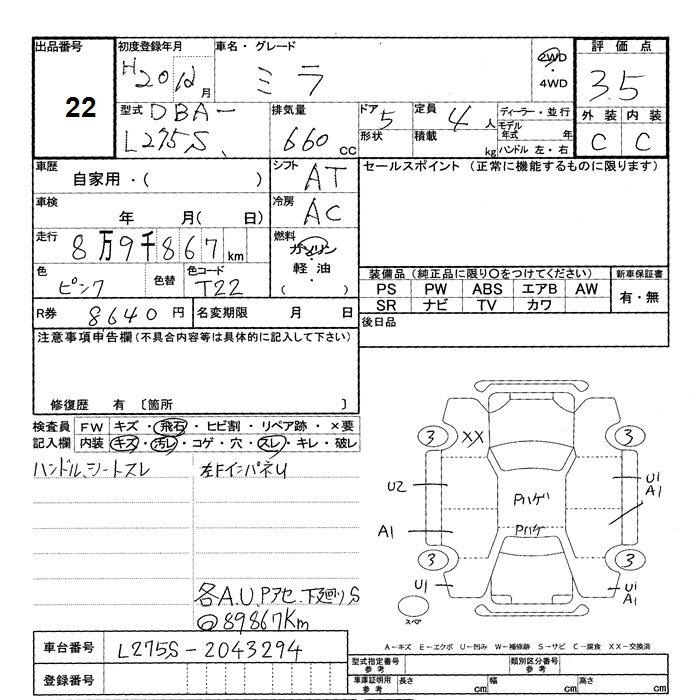 出品番号 22
初度登録年月 H20年12月
車名・グレード ミラ
2WD・4WD
評価点 3.5
型式 DBA-L275S
排気量 660cc
ドア 5
形状
定員 4人
積載 kg
ディーラー・並行
モデル年式 年
ハンドル 左・右
外装 内装
C C
車歴 自家用・( )
シフト AT
セールスポイント (正常に機能するものに限ります)
車検 年 月( 日)
冷房 AC
走行 8万9千867km
燃料 ガソリン・軽油 ( )
色 ピンク 色替 色コード T22
装備品(純正品に限り○をつけてください)
新車保証書
PS PW ABS エアB AW
有・無
SR ナビ TV カワ
R券 8640円 名変期限 月 日
後日品
注意事項申告欄(不具合内容等は具体的に記入して下さい)
修復歴 有 〔箇所 〕
検査員記入欄
FW キズ・飛石・ヒビ割・リペア跡・×要
内装 キズ・汚レ・コゲ・穴・スレ・キレ・破レ
ハンドル、シートスレ
左FインパネU
3 XX 3
U2 U1 A1
Pハゲ
A1 Pハゲ
3 3
U1 U1 A1
スペア
各A.U.Pアセ.下廻りS
◎89867Km
車台番号 L275S-2043294
登録番号
A-キズ E-エクボ U-凹み W-補修跡 S-サビ C-腐食 XX-交換済
型式指定番号 参考 類別区分番号 参考
車庫証明用 参考 長さ cm 幅 cm 高さ cm